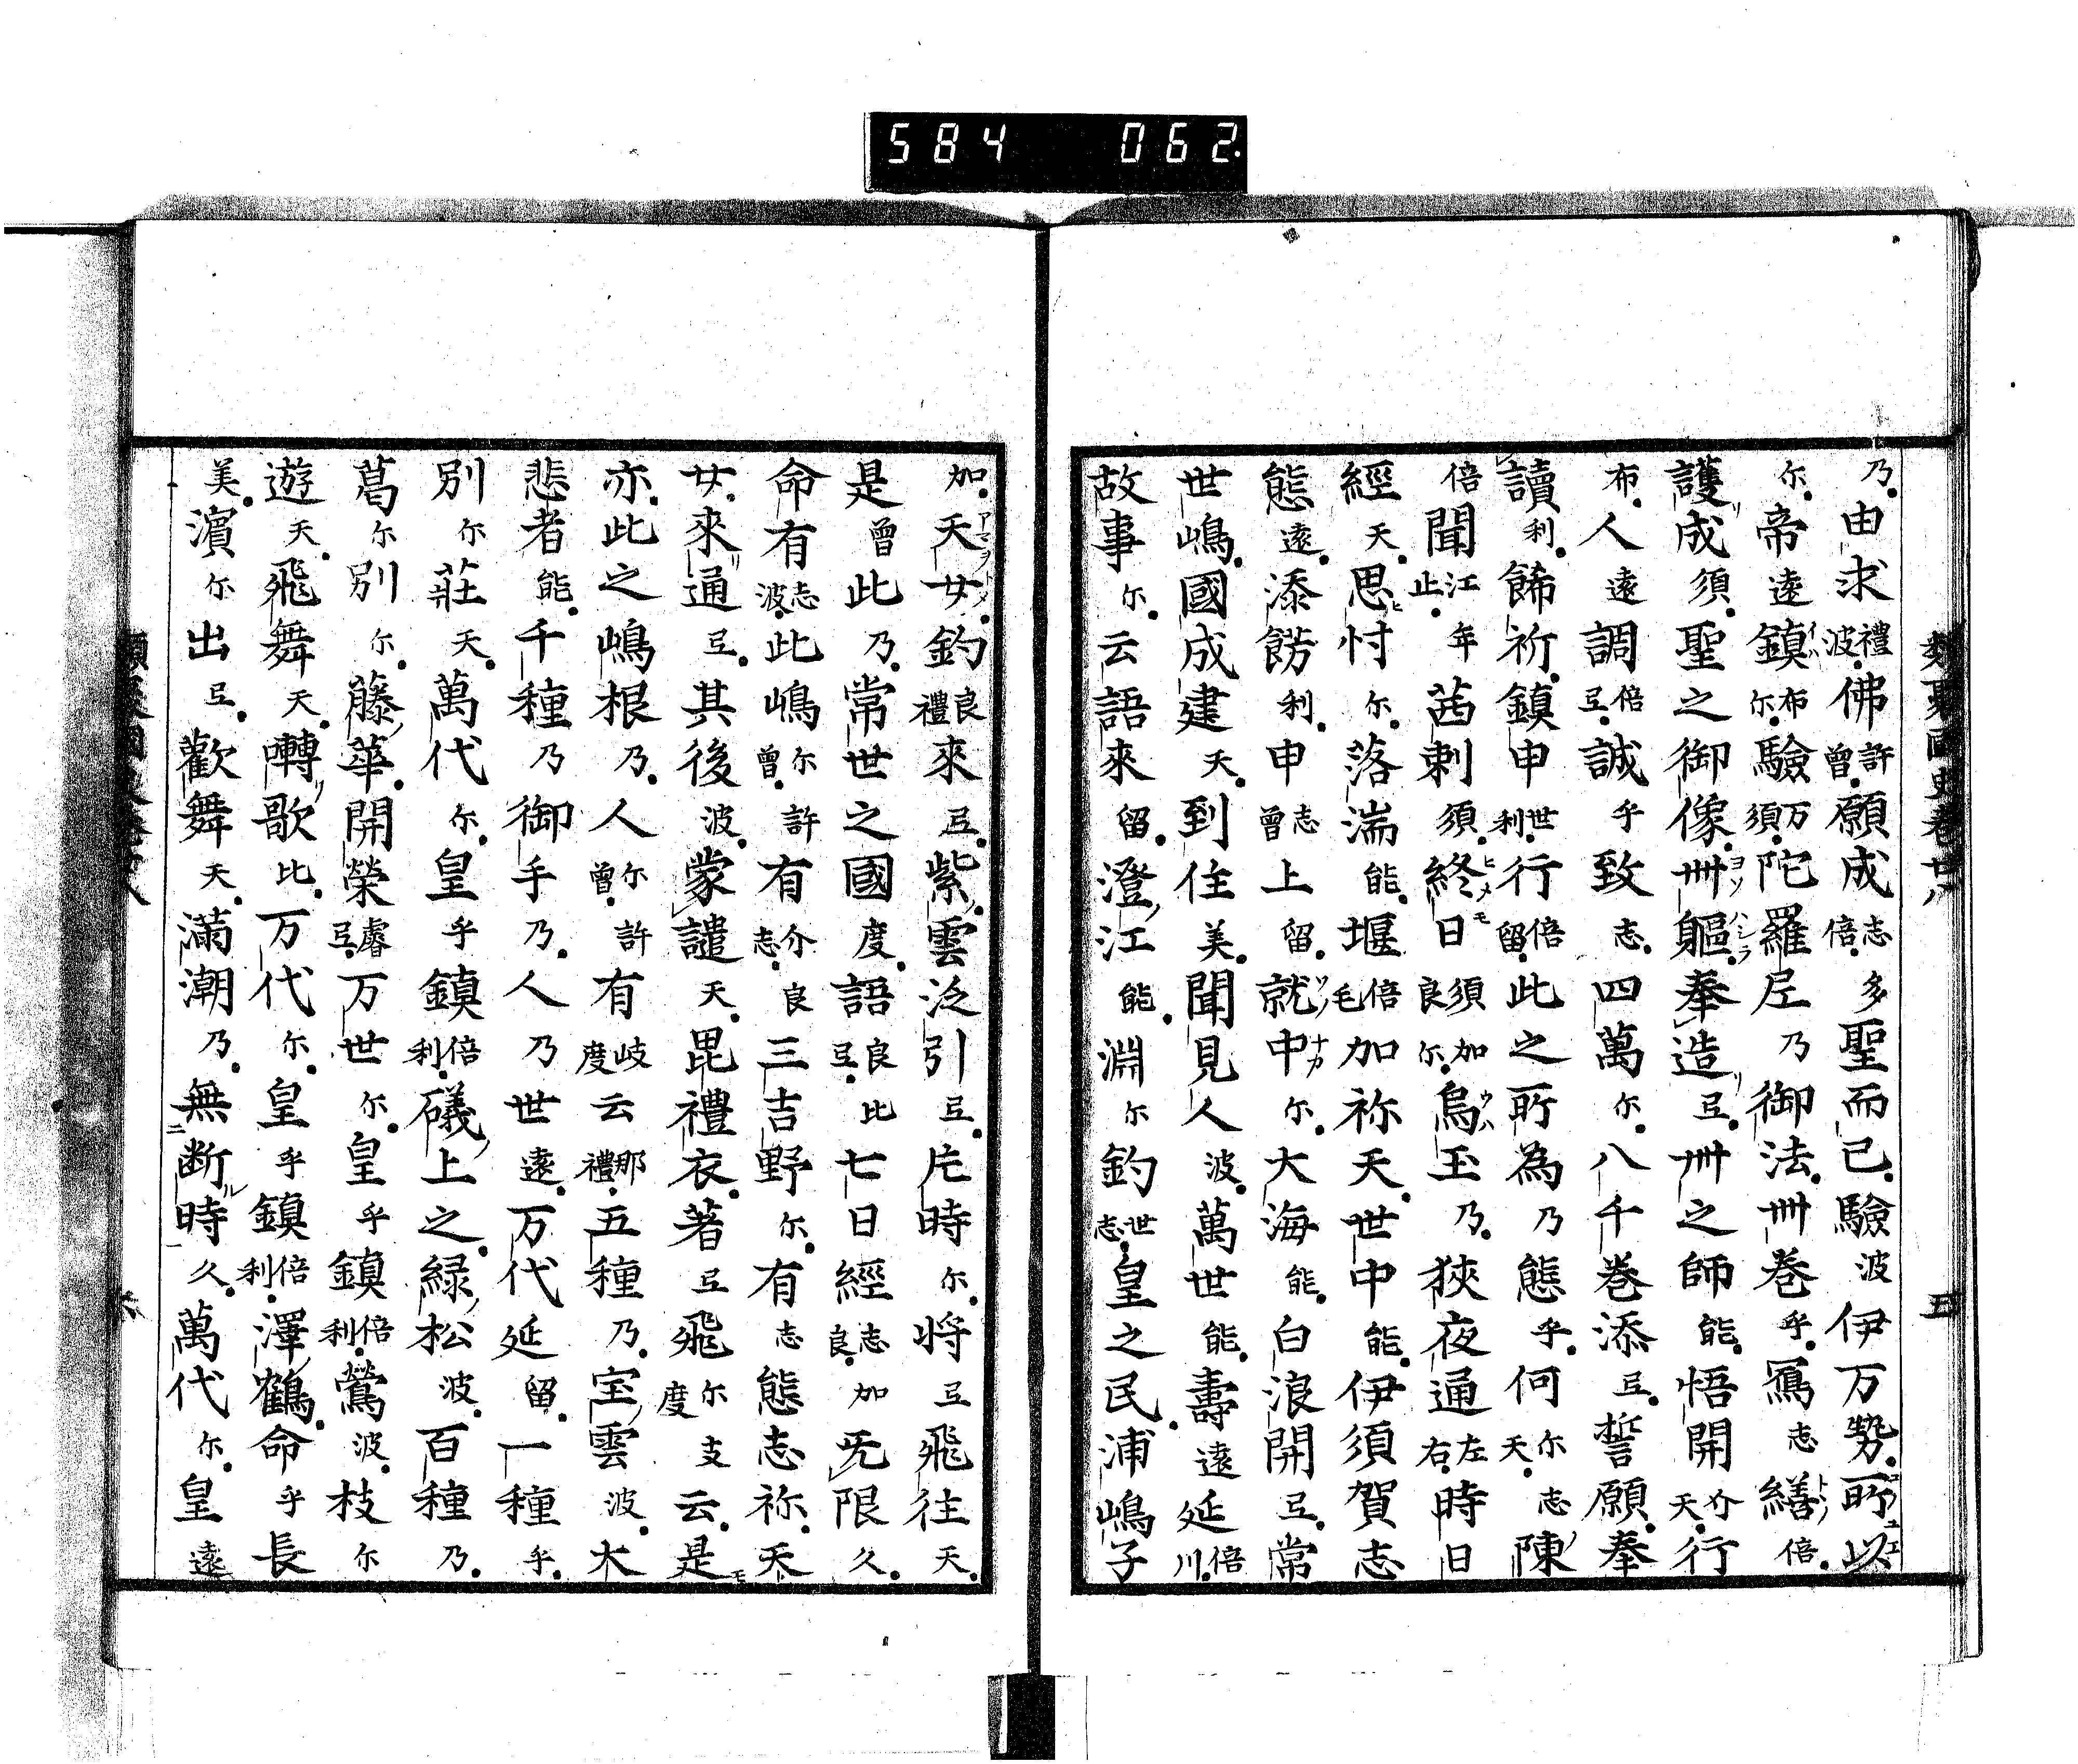 584 062
類聚國史卷廿八
五
乃由求禮波佛許曾願成志倍多聖而已驗波伊万勢所以
尓帝遠鎮布尓驗万須陀羅尼乃御法卌卷乎寫志繕倍
護成須聖之御像卌軀奉造弖卌之師能悟開介天行
布人遠調倍弖誠乎致志四萬尓八千卷添弖誓願奉
讀利餝祈鎮申世利行倍留此之所為乃態乎何尓天志陳
倍聞江止年茜刺須終日須良加尓烏玉乃狹夜通左右時日
經天思忖尓落湍能堰倍毛加祢天世中能伊須賀志
態遠添餝利申志曾上留就中尓大海能白浪開弖常
世嶋國成建天到住美聞見人波萬世能壽遠延倍川
故事尓云語來留澄江能淵尓釣世志皇之民浦嶋子
加天女釣良禮來弖紫雲泛引弖片時尓将弖飛往天
是曾此乃常世之國度語良弖比七日經志良加旡限久
命有志波此嶋尓曾許有介志良三吉野尓有志熊志祢天
女來通弖其後波蒙譴天毘禮衣著弖飛尓度支云是
亦此之嶋根乃人尓曾許有岐度云那禮五種乃宝雲波大
悲者能千種乃御手乃人乃世遠万代延留一種乎
別尓莊天萬代尓皇乎鎮倍利礒上之緑松波百種乃
葛尓別尓藤華開榮睿弖万世尓皇乎鎮倍利鶯波枝尓
遊天飛舞天囀歌比万代尓皇乎鎮倍利澤鶴命乎長
美濵尓出弖歡舞天滿潮乃無断時久萬代尓皇遠